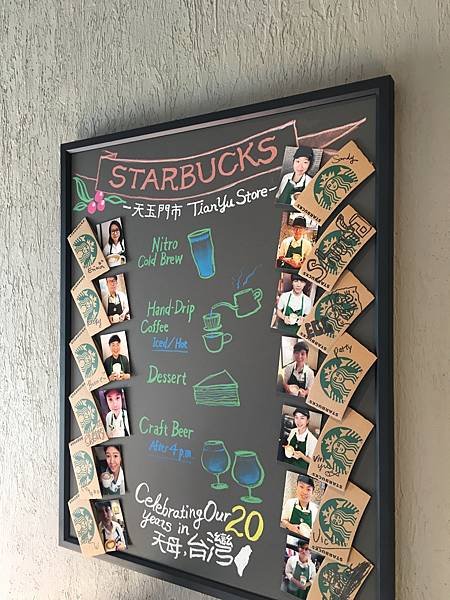 STARBUCKS
-天玉門市 TianYu Store-
Nitro
Cold Brew
Hand-Drip
Coffee
Iced/Hot
Dessert
Craft Beer
After 4 p.m
Celebrating Our 20
Years in
天母,台灣
Sandy
STARBUCKS
STARBUCKS
Patty
STARBUCKS
STARBUCKS
STARBUCKS